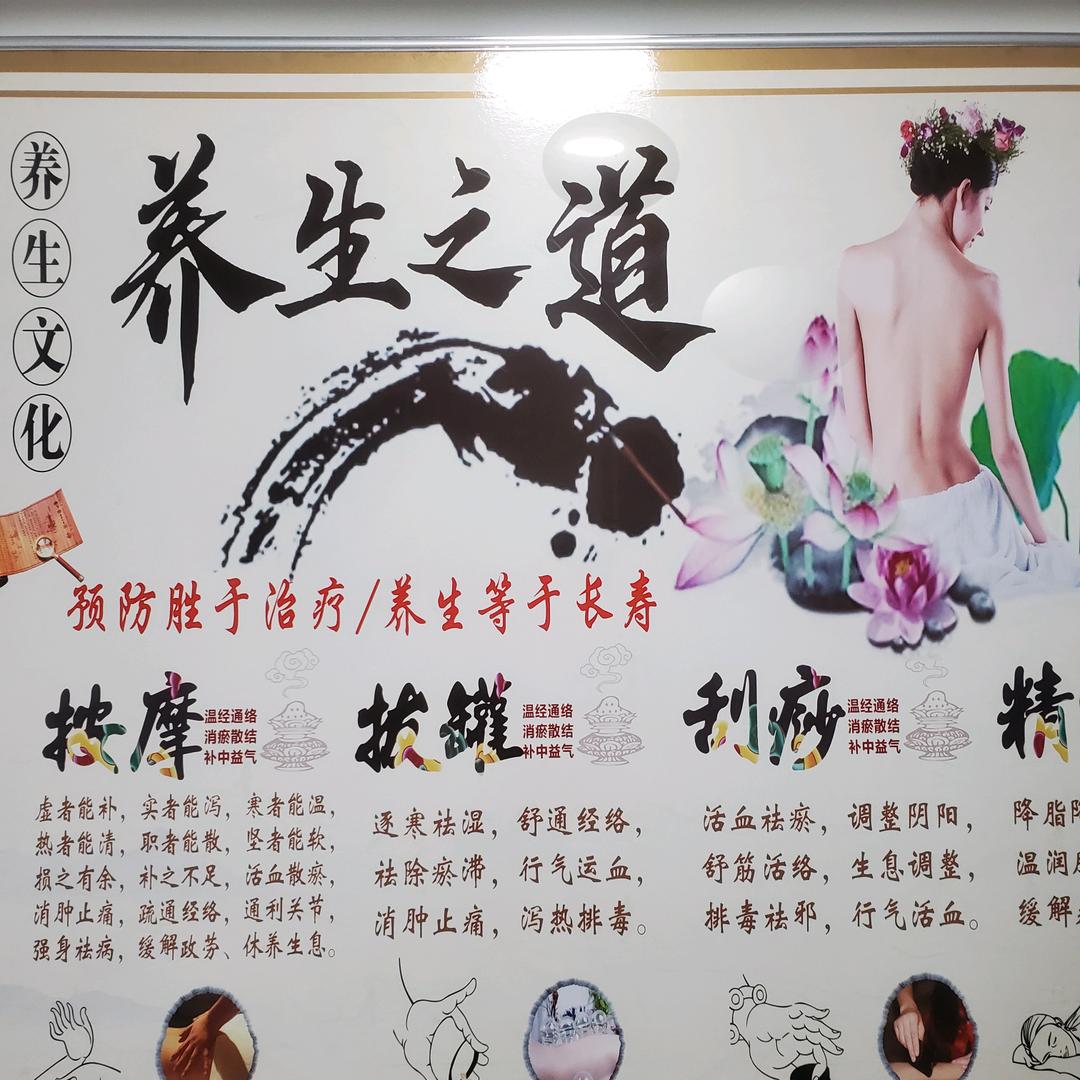 养生文化
养生之道
预防胜于治疗/养生等于长寿
按摩
温经通络
消瘀散结
补中益气
虚者能补，实者能泻，寒者能温，
热者能清，职者能散，坚者能软，
损之有余，补之不足，活血散瘀，
消肿止痛，疏通经络，通利关节，
强身祛病，缓解政劳、休养生息。
拔罐
温经通络
消瘀散结
补中益气
逐寒祛湿，舒通经络，
祛除瘀滞，行气运血，
消肿止痛，泻热排毒。
刮痧
温经通络
消瘀散结
补中益气
活血祛瘀，调整阴阳，
舒筋活络，生息调整，
排毒祛邪，行气活血。
精
降脂
温润
缓解